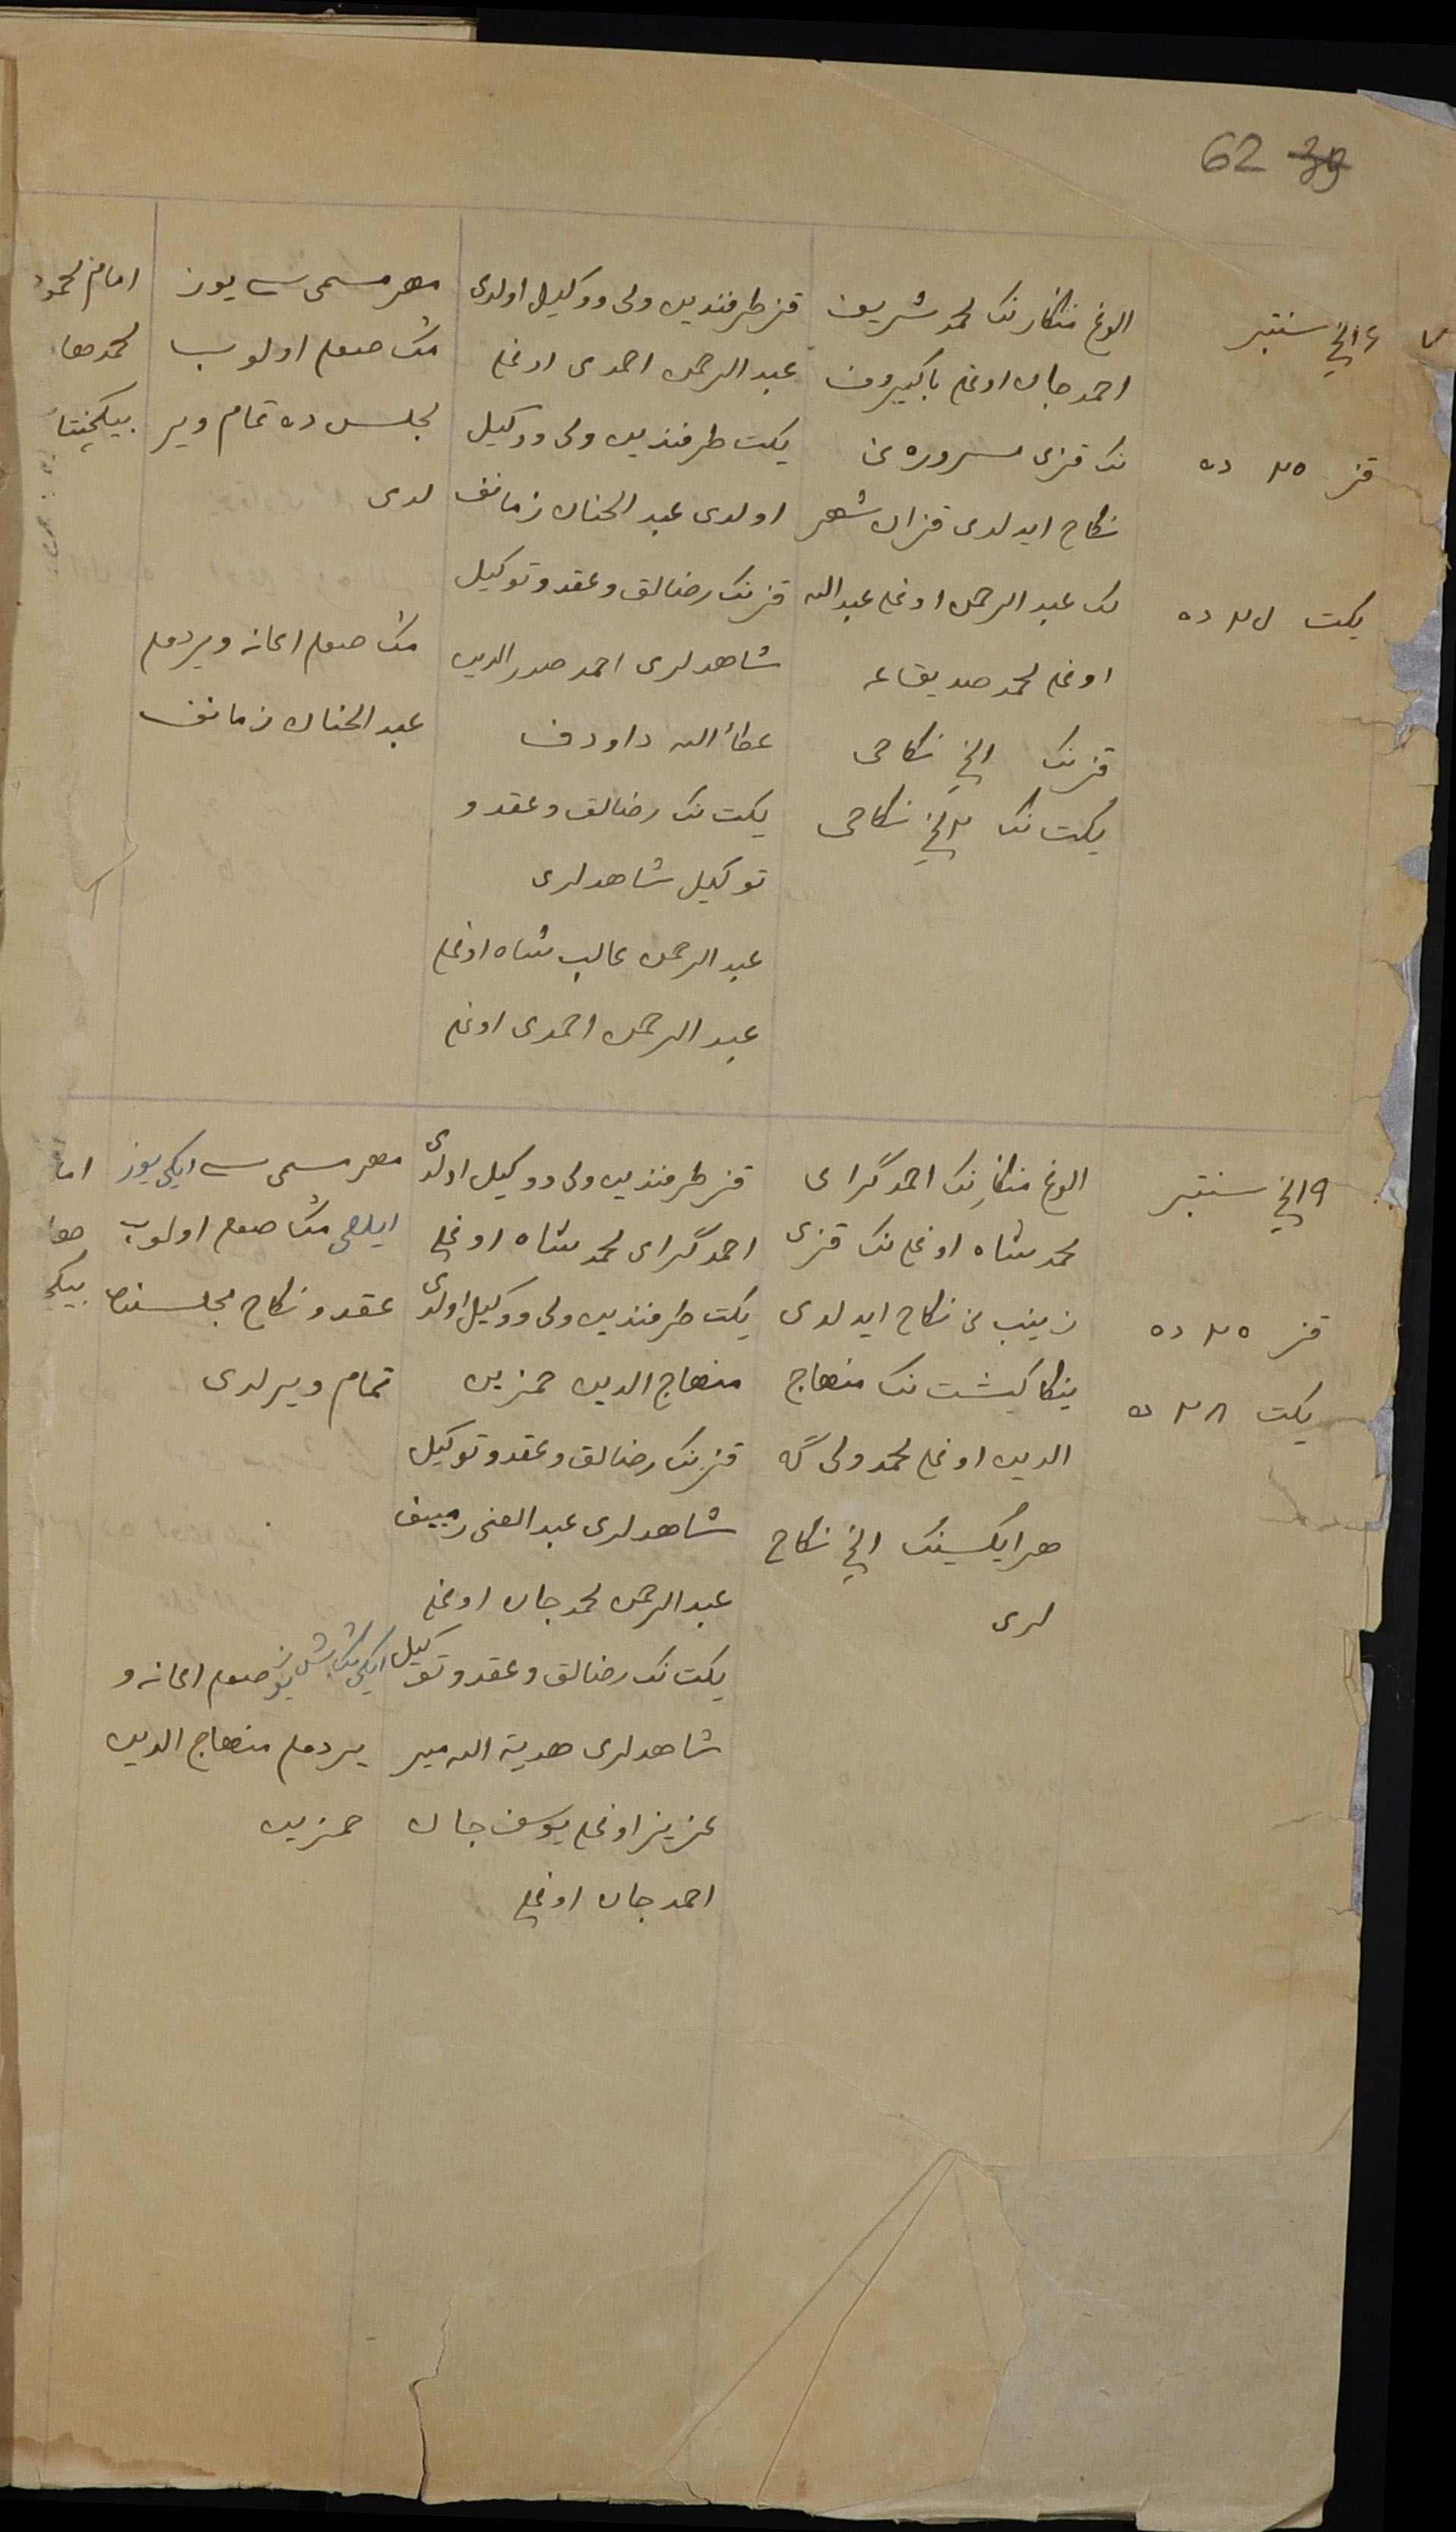 62 39
۷
۶ انچی سنتبر
قز ۲۵ ده
یکت ۲۷ ده
الوغ منکار نک محمد شریف
احمد جان اوغلی باکیروف
نک قزی سروره نی
نکاح ایدلدی قزان شهر
نک عبد الرحمن اوغلی عبد الله
اوغلی محمد صدیقا غه
قزنک انچی نکاحی
یکت نک ۲ انچی نکاحی
قز طرفندین ولی ووکیل اولدی
عبد الرحمن احمدی اوغلی
یکت طرفندین ولی ووکیل
اولدی عبد الحنان زمانف
قزنک رضالق وعقد وتوکیل
شاهدلری احمد صدر الدین
عطاء الله داودف
یکت نک رضالق وعقد و
توکیل شاهدلری
عبد الرحمن غالب شاه اوغلی
عبد الرحمن احمدی اوغلی
مهر مسمی سی یوز
مک صوم اولوب
مجلس ده تمام ویر
لدی
مک صوم اعانه ویردم
عبد الحنان زمانف
امام محمود
محمد صفا
بیکچنتا
۹ انچی سنتبر
قز ۲۵ ده
یکت ۲۸ ده
الوغ منکارنک احمد گرای
محمد شاه اوغلی نک قزی
زینب نی نکاح ایدلدی
ینکا کیشت نک منهاج
الدین اوغلی محمد ولی گه
هر ایکیسینک انچی نکاح
لری
قز طرفندین ولی ووکیل اولدی
احمد گرای محمد شاه اوغلی
یکت طرفندین ولی ووکیل اولدی
منهاج الدین حمزین
قزنک رضالق وعقد وتوکیل
شاهدلری عبد الغنی
عبد الرحمن محمد جان اوغلی
یکت نک رضالق وعقد وتوکیل
شاهدلری هدیة الله میر
عزیز اوغلی یوسف جان
احمد جان اوغلی
مهر مسمی سی ایکی یوز
ایللی مک صوم اولوب
عقد و نکاح مجلسنده
تمام ویرلدی
ایکی مک بش یوز صوم اعانه و
یردم منهاج الدین
حمزین
اما
صفا
بیکچ